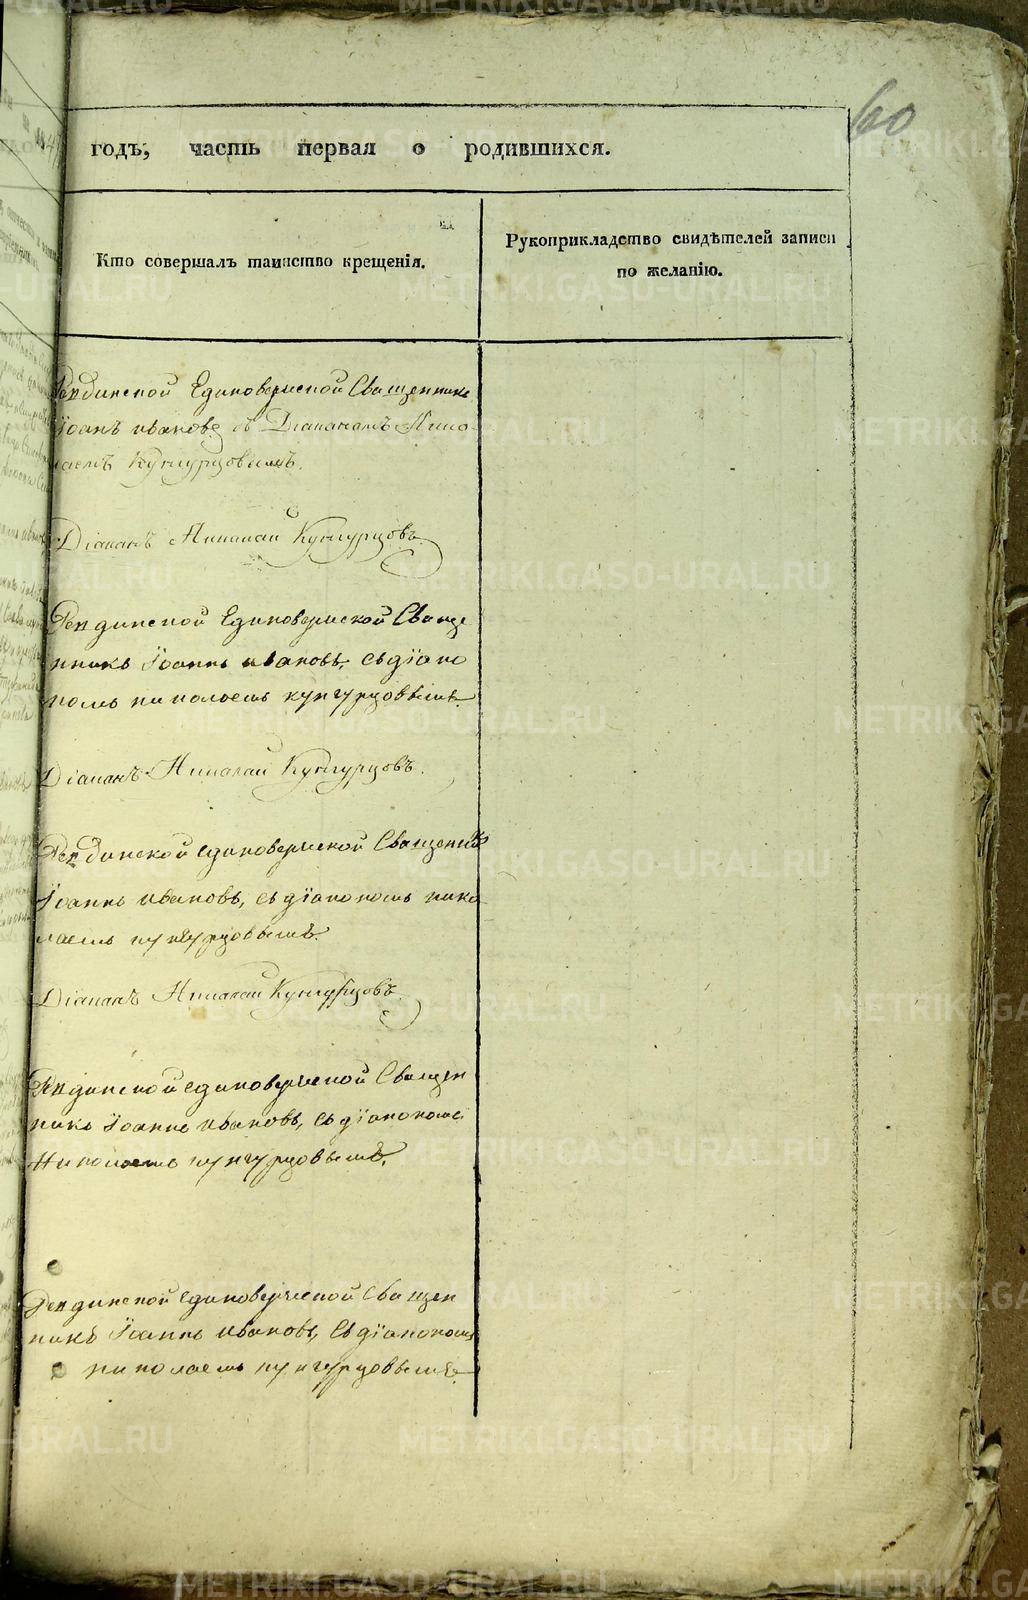 60
годъ, часть первая о родившихся.
Кто совершалъ таинство крещенія.
Рукоприкладство свидѣтелей записи
по желанію.
Ревдинской Единоверческой Священникъ
Іоанъ Ивановъ съ Діакономъ Нико
лаемъ Кунгурцовымъ.
Діаконъ Николай Кунгурцовъ
Ревдинской Единоверческой Свяще
нникъ Іоаннъ Ивановъ, съ діако
номъ николаемъ кунгурцовымъ.
Діаконъ Николай Кунгурцовъ.
Ревдинской единоверческой Священникъ
Іоаннъ Ивановъ, съ діакономъ нико
лаемъ кунгурцовымъ.
Діаконъ Николай Кунгурцовъ
Ревдинской единоверческой Священ
никъ Іоаннъ Ивановъ, съ діакономъ
Николаемъ кунгурцовымъ.
Ревдинской единоверческой Священ
никъ Іоаннъ Ивановъ, съ діакономъ
николаемъ кунгурцовымъ.
METRIKI.GASO-URAL.RU